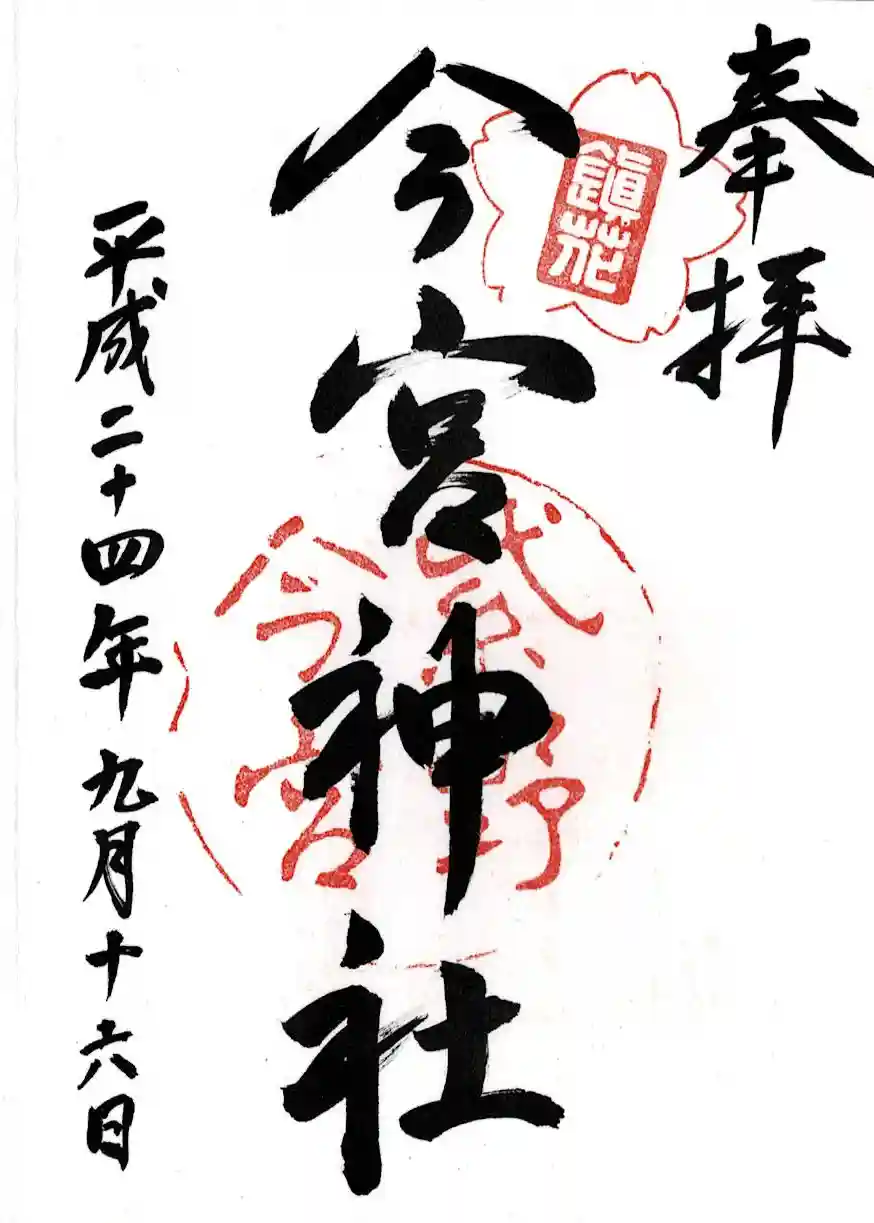 奉拝
鎭花
今宮神社
紫野
今宮
平成二十四年九月十六日